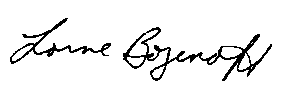 Lorne Bozenoff